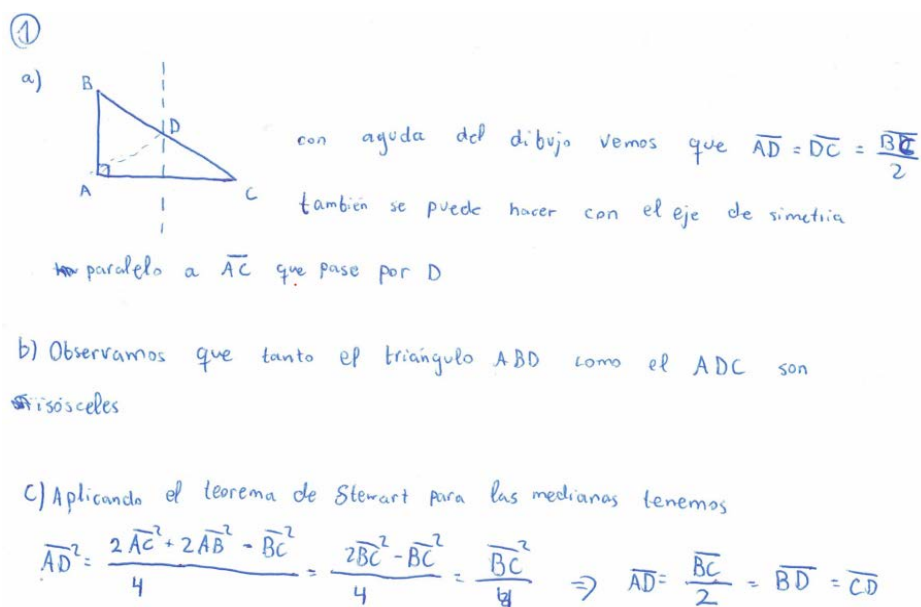 ①
a)
B
D
A
C
con aguda del dibujo vemos que \overline{AD} = \overline{DC} = \frac{\overline{BC}}{2}
también se puede hacer con el eje de simetria
paralelo a \overline{AC} que pase por D
b) Observamos que tanto el triángulo ABD como el ADC son
isósceles
C) Aplicando el teorema de Stewart para las medianas tenemos
\overline{AD}^2 = \frac{2\overline{AC}^2 + 2\overline{AB}^2 - \overline{BC}^2}{4} = \frac{2\overline{BC}^2 - \overline{BC}^2}{4} = \frac{\overline{BC}^2}{4} ⇒ \overline{AD} = \frac{\overline{BC}}{2} = \overline{BD} = \overline{CD}